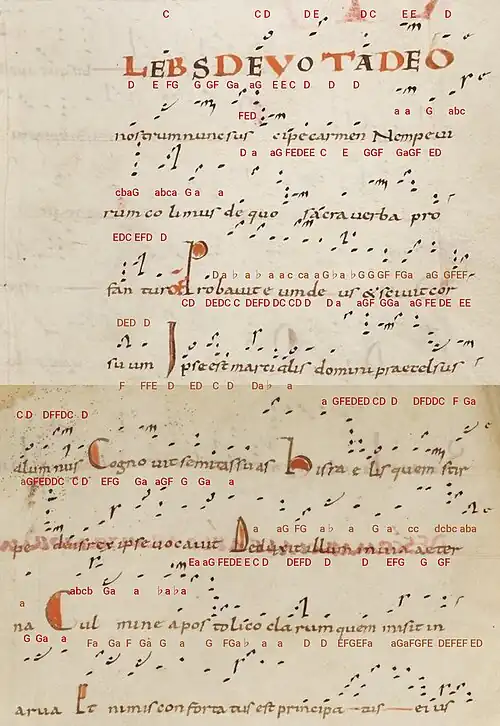 C CD DE DC EE D
LEBS DEVOTA DEO
D E FG G GF Ga aG E E C D D D
FED a a G abc
nostrum nunc sus cipe carmen Nempe vi
D a aG FEDEE C E GGF GaGF ED
cbaG abca G a a
rum co limus de quo sacra verba pro
EDC EFD D
D a ♭ a ♭ a a c ca a G ♭ a ♭ G G GF FGa aG GFEF
fan tur Probavit e um de us & scivit cor
CD DEDC C DEFD DC CD D Da aGF GGa aG FE DE EE
DED D
su um Ipse est martialis domini praecelsus
F FFE D ED C D Da♭ a
a GFEDED CD D DFDDC F Ga
CD DFFDC D
alumnus Cogno vit semitas su as his ra e lis quem stir
aGFEDDC CD EFG Ga aGF G Ga a
a aG FG a♭ a G a cc dcbc aba
pe deus rex ipse vocavit Deduxit illum in via aeter
Ea aG FEDE E C D DEFD D D EFG G GF
a abcb Ga a ♭a♭a
na Cul mine apos tolico cla rum quem misit in
G Ga a Fa Ga F Ga G a G FGa ♭ a a D D EFGEFa aGaFGFE DEFEF ED
arua Et nimis confortatus est principa tus eius